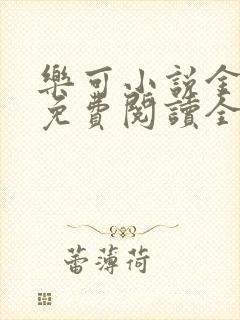 樂可小説全
免費閱讀全
蕾薄荷